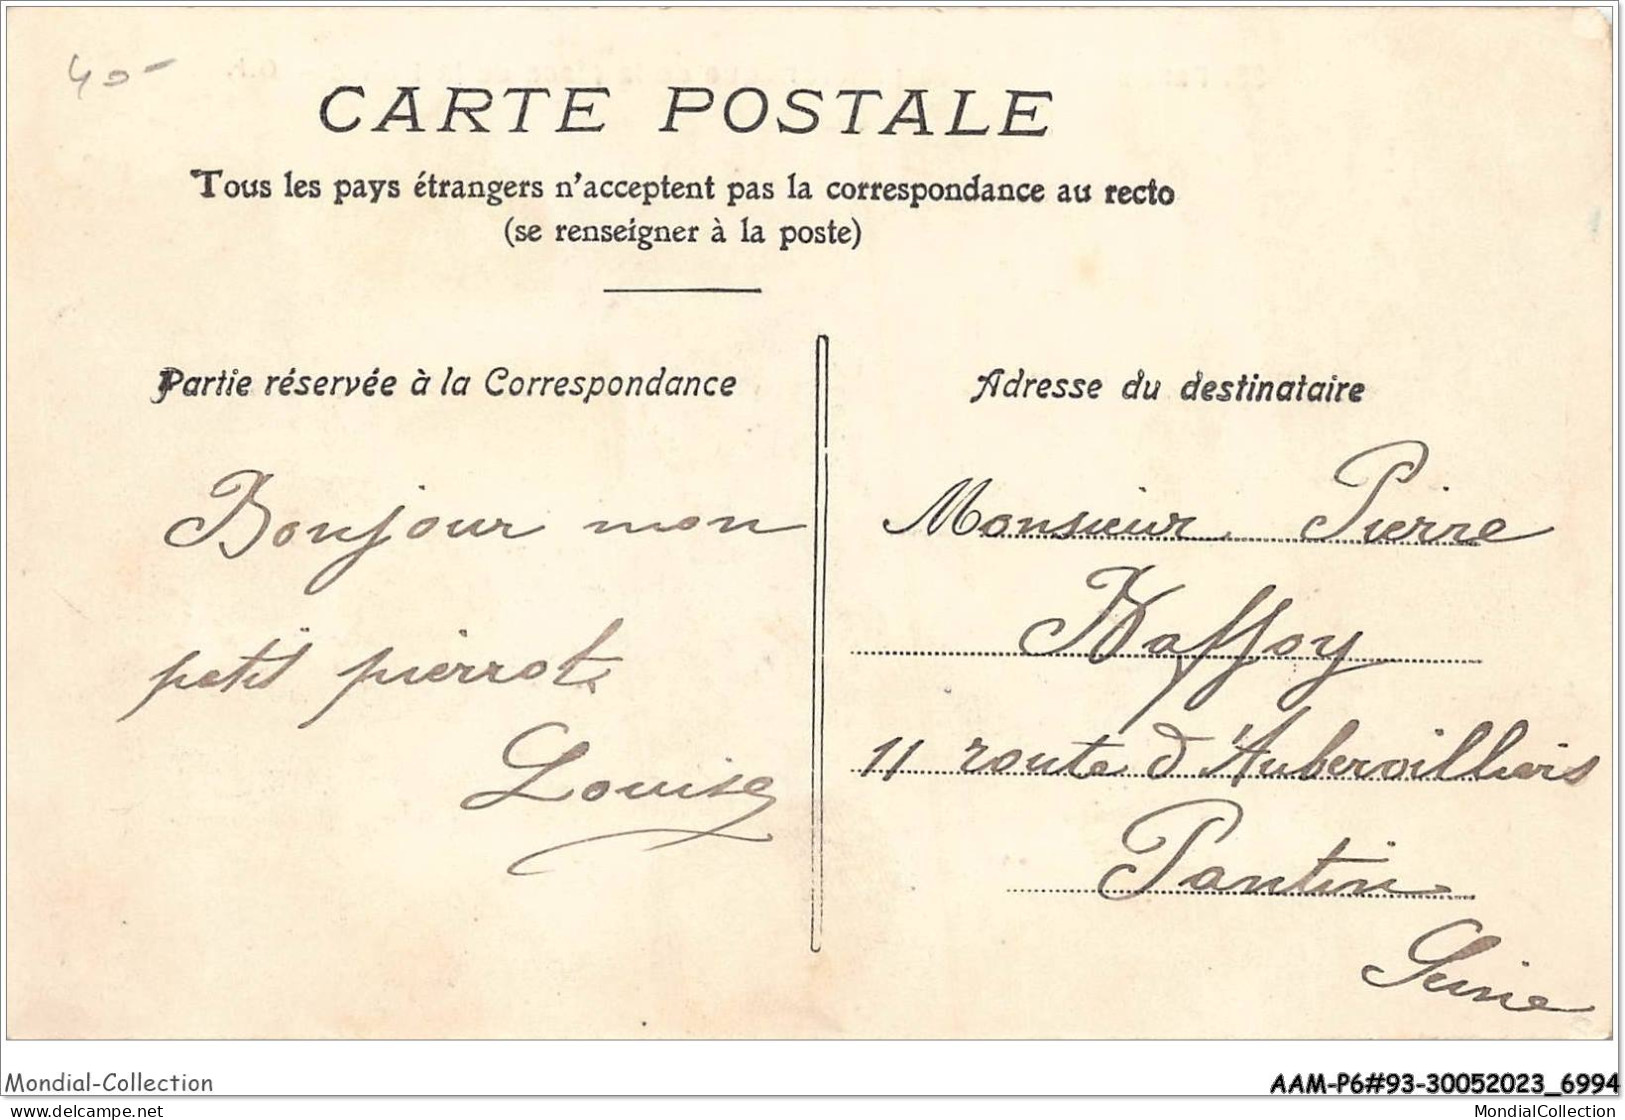 40-
CARTE POSTALE
Tous les pays étrangers n'acceptent pas la correspondance au recto
(se renseigner à la poste)
Partie réservée à la Correspondance
Bonjour mon
petit pierrot
Louise
Adresse du destinataire
Monsieur Pierre
Haffoy
11 route d'Aubervilliers
Pantin
Seine
Mondial-Collection
AAM-P6#93-30052023_6994
mondial-collection.delcampe.net
MondialCollection